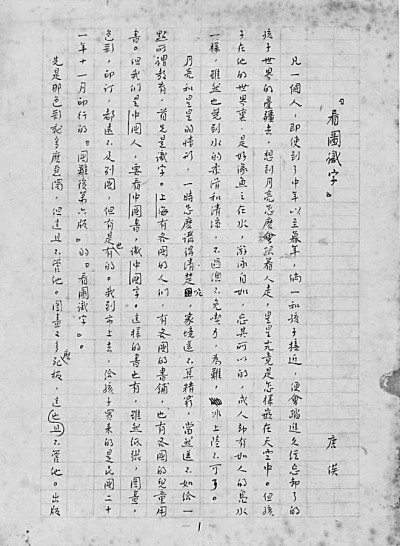 『看圖識字』
唐俟
凡一個人，即使到了中年以至暮年，倘一和孩子接近，便會踏進久經忘却了的
孩子世界的邊疆去，想到月亮怎麽會跟着人走，星星究竟是怎樣嵌在天空中。但孩
子在他的世界裏，是好像魚之在水，游泳自如，忘其所以的，成人却有如人的鳧水
一樣，雖然也覺到水的柔滑和清涼，不過總不免吃力，爲難，非上陸不可了。
月亮和星星的情形，一時怎麽講得清楚呢，家境還不算精窮，當然還不如給一
點所謂教育，首先是識字。上海有各國的人們，有各國的書鋪，也有各國的兒童用
書。但我們是中國人，要看中國書，識中國字。這樣的書也有，雖然紙張，圖畫，
色彩，印訂，都遠不及別國，但有是也有的。我到市上去，給孩子買來的是民國二十
一年十一月印行的『國難後第六版』的『看圖識字』。
先是那色彩就多麽惡濁，但這且不管他。圖畫又多麽死板，這也且不管他。出版
1